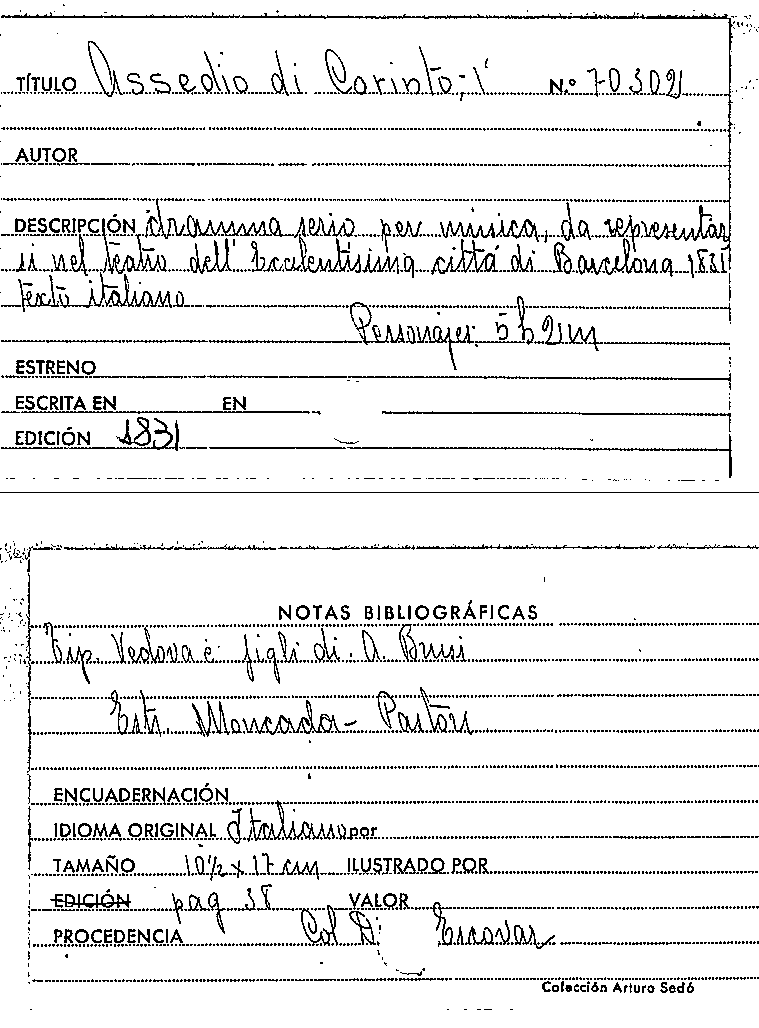 TÍTULO Assedio di Corinto, l' N.º 70302
AUTOR
DESCRIPCIÓN dramma serio per musica, da representar
si nel teatro dell' Eccelentisima cittá di Barcelona 1831
texto italiano
Personajes: 5 h 2 m
ESTRENO
ESCRITA EN EN
EDICIÓN 1831
NOTAS BIBLIOGRÁFICAS
Tip. Vedova é figli di. A. Brusi
Estr. Moncada - Pastors
ENCUADERNACIÓN
IDIOMA ORIGINAL Italiano por
TAMAÑO 10½ x 17 cm ILUSTRADO POR
EDICIÓN pag 38 VALOR
PROCEDENCIA Col D. Escovar
Colección Arturo Sedó